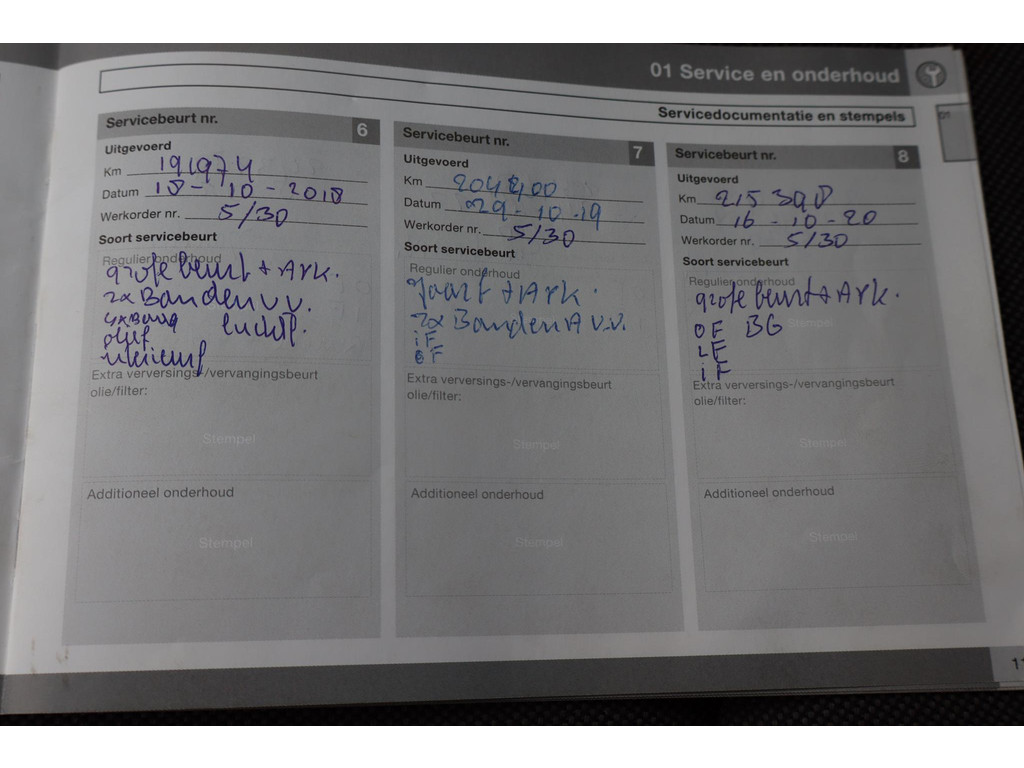 01 Service en onderhoud
Servicedocumentatie en stempels
01
Servicebeurt nr. 6
Uitgevoerd
Km 191974
Datum 18-10-2018
Werkorder nr. 5/30
Soort servicebeurt
Regulier onderhoud
grote beurt + Ark.
2x Banden v.v.
4x Band luchtf.
olief
interieurf
Extra verversings-/vervangingsbeurt
olie/filter:
Stempel
Additioneel onderhoud
Stempel
Servicebeurt nr. 7
Uitgevoerd
Km 204400
Datum 029-10-19
Werkorder nr. 5/30
Soort servicebeurt
Regulier onderhoud
+ Ark.
2x Banden A v.v.
iF
oF
Extra verversings-/vervangingsbeurt
olie/filter:
Stempel
Additioneel onderhoud
Stempel
Servicebeurt nr. 8
Uitgevoerd
Km 215398
Datum 16-10-20
Werkorder nr. 5/30
Soort servicebeurt
Regulier onderhoud
grote beurt + Ark.
Stempel
OF BG
LF
iF
Extra verversings-/vervangingsbeurt
olie/filter:
Stempel
Additioneel onderhoud
Stempel
11